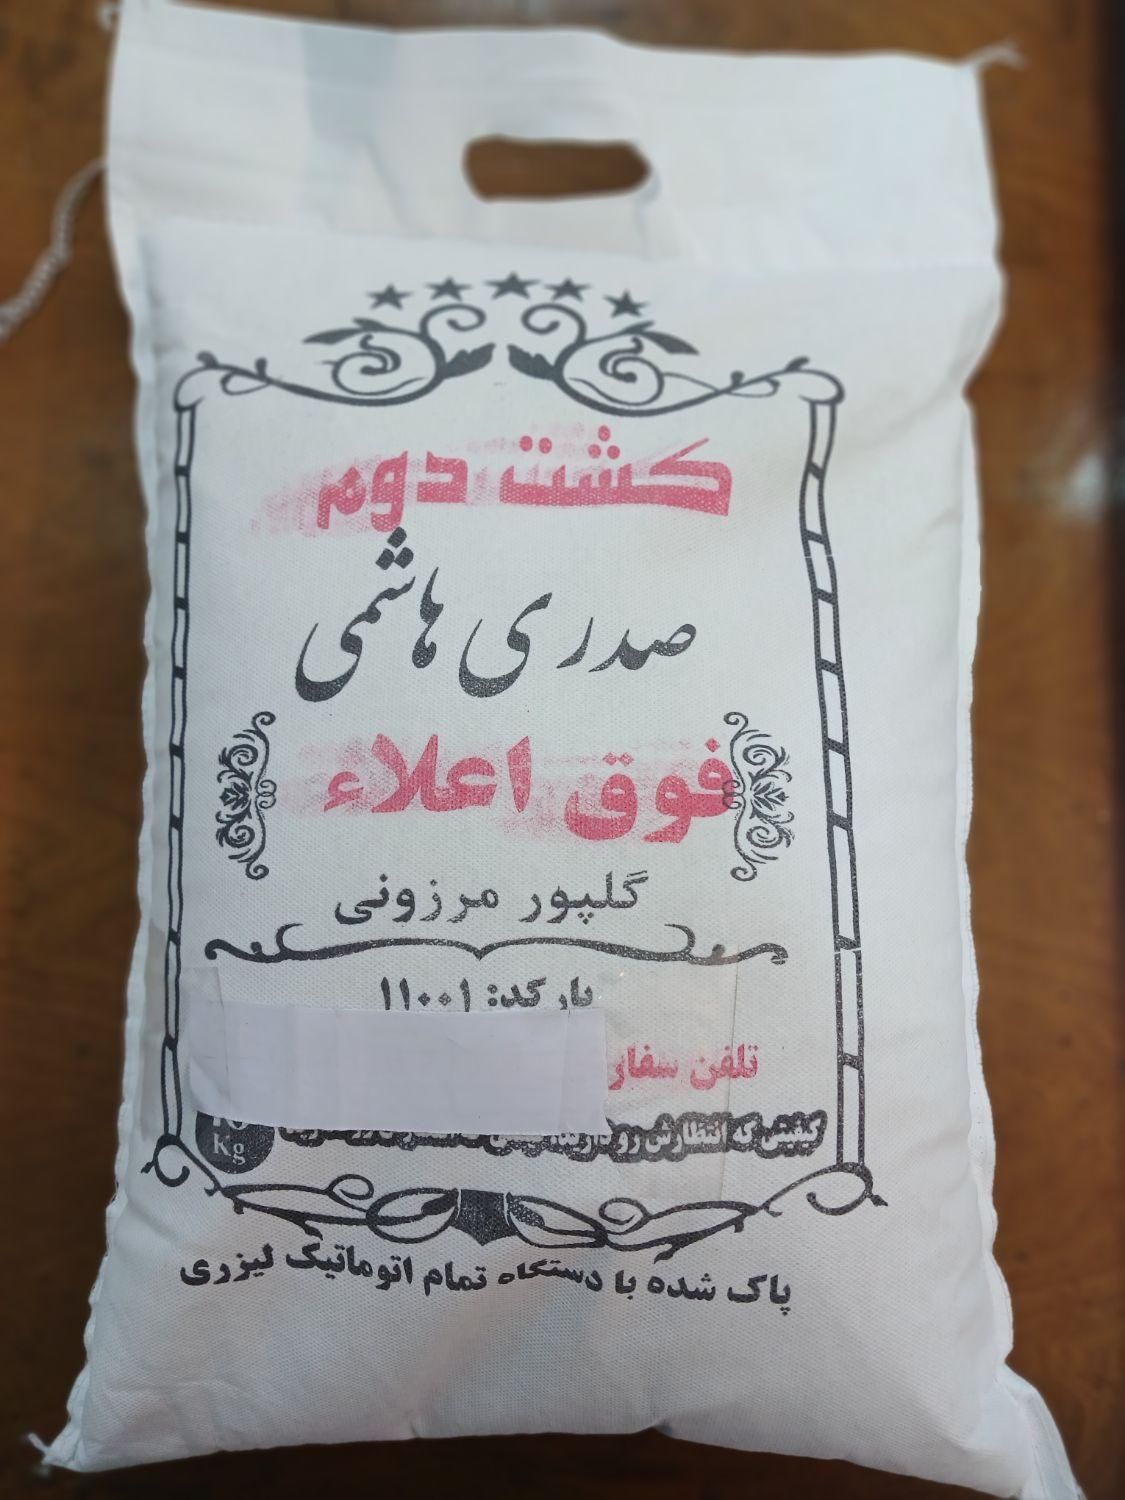 کشت دوم
صدری هاشمی
فوق اعلاء
گلپور مرزونی
بارکد: ۱۱۰۰۱
تلفن سفار
کیفیتی که انتظارش رو دارید
Kg
پاک شده با دستگاه تمام اتوماتیک لیزری